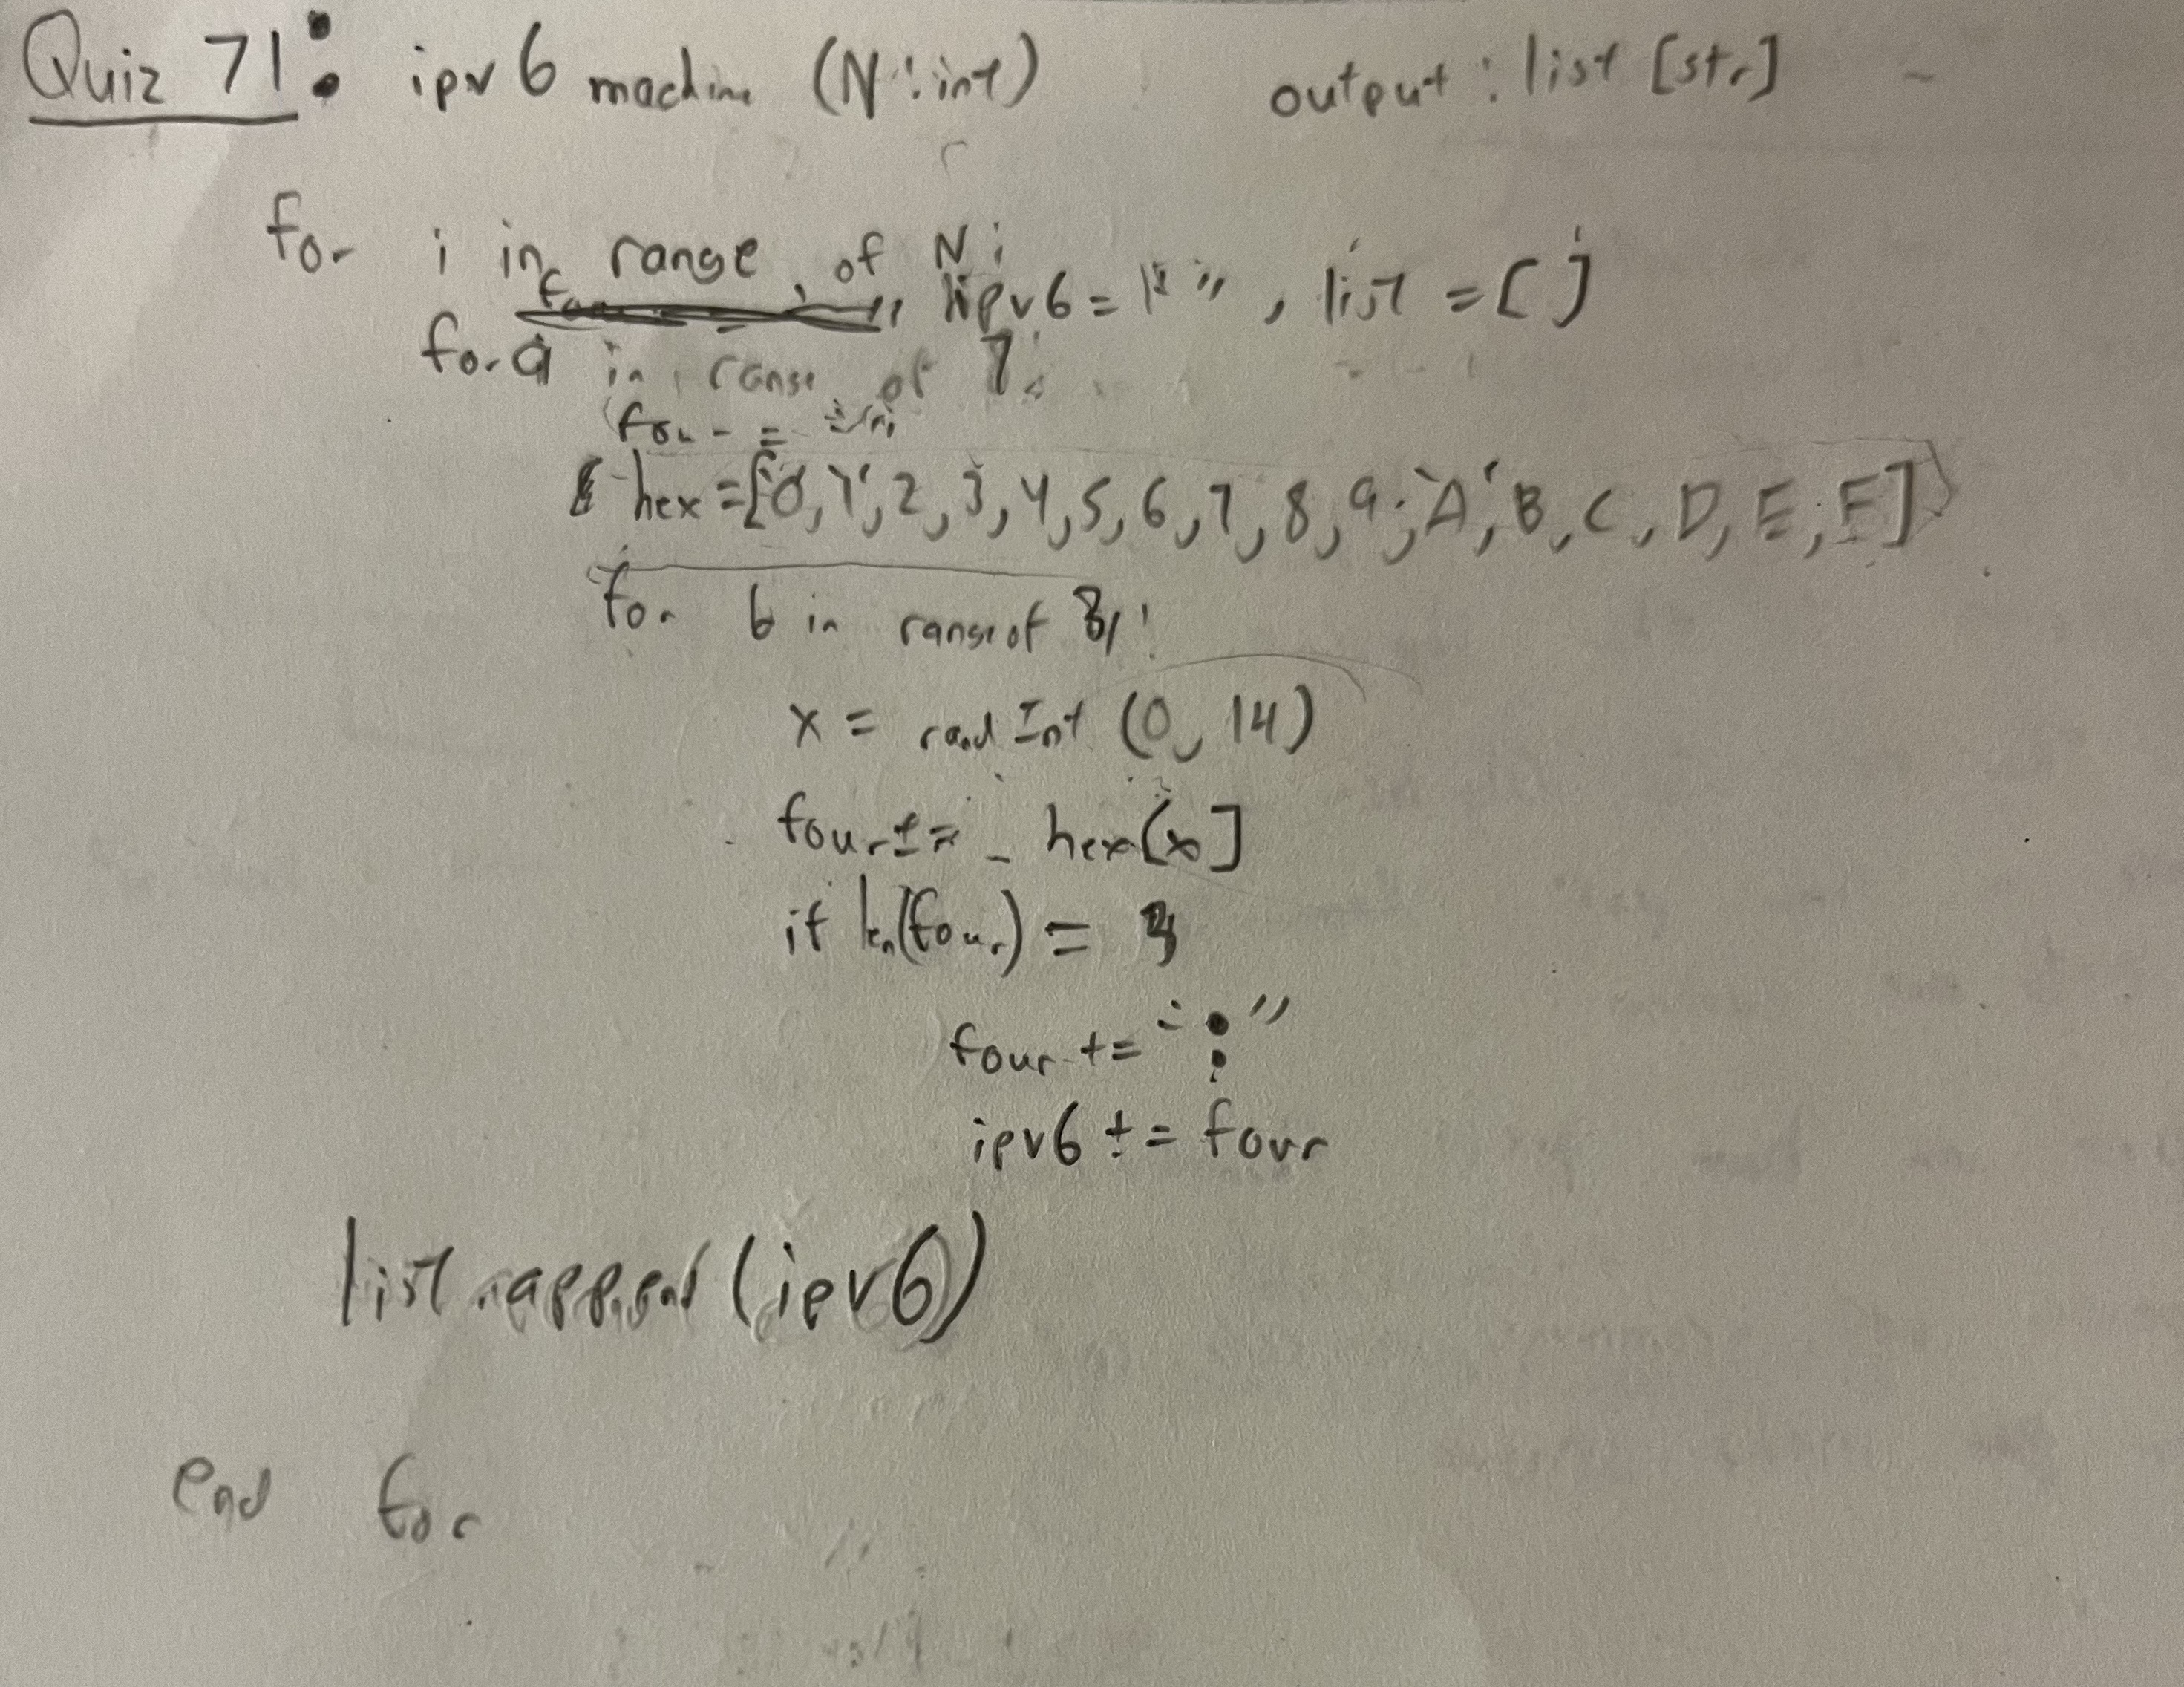 Quiz 71: ipv6 machine (N:int) output: list [str]
for i in range of N:
ipv6 = "", list = []
for a in range of 7:
four =
hex = ['0, '1', 2, 3, 4, 5, 6, 7, 8, 9, 'A', B, C, D, E, F]
for b in range of :
x = randInt (0, 14)
four += hex[x]
if len(four) =
four += ":"
ipv6 += four
list.append(ipv6)
end for